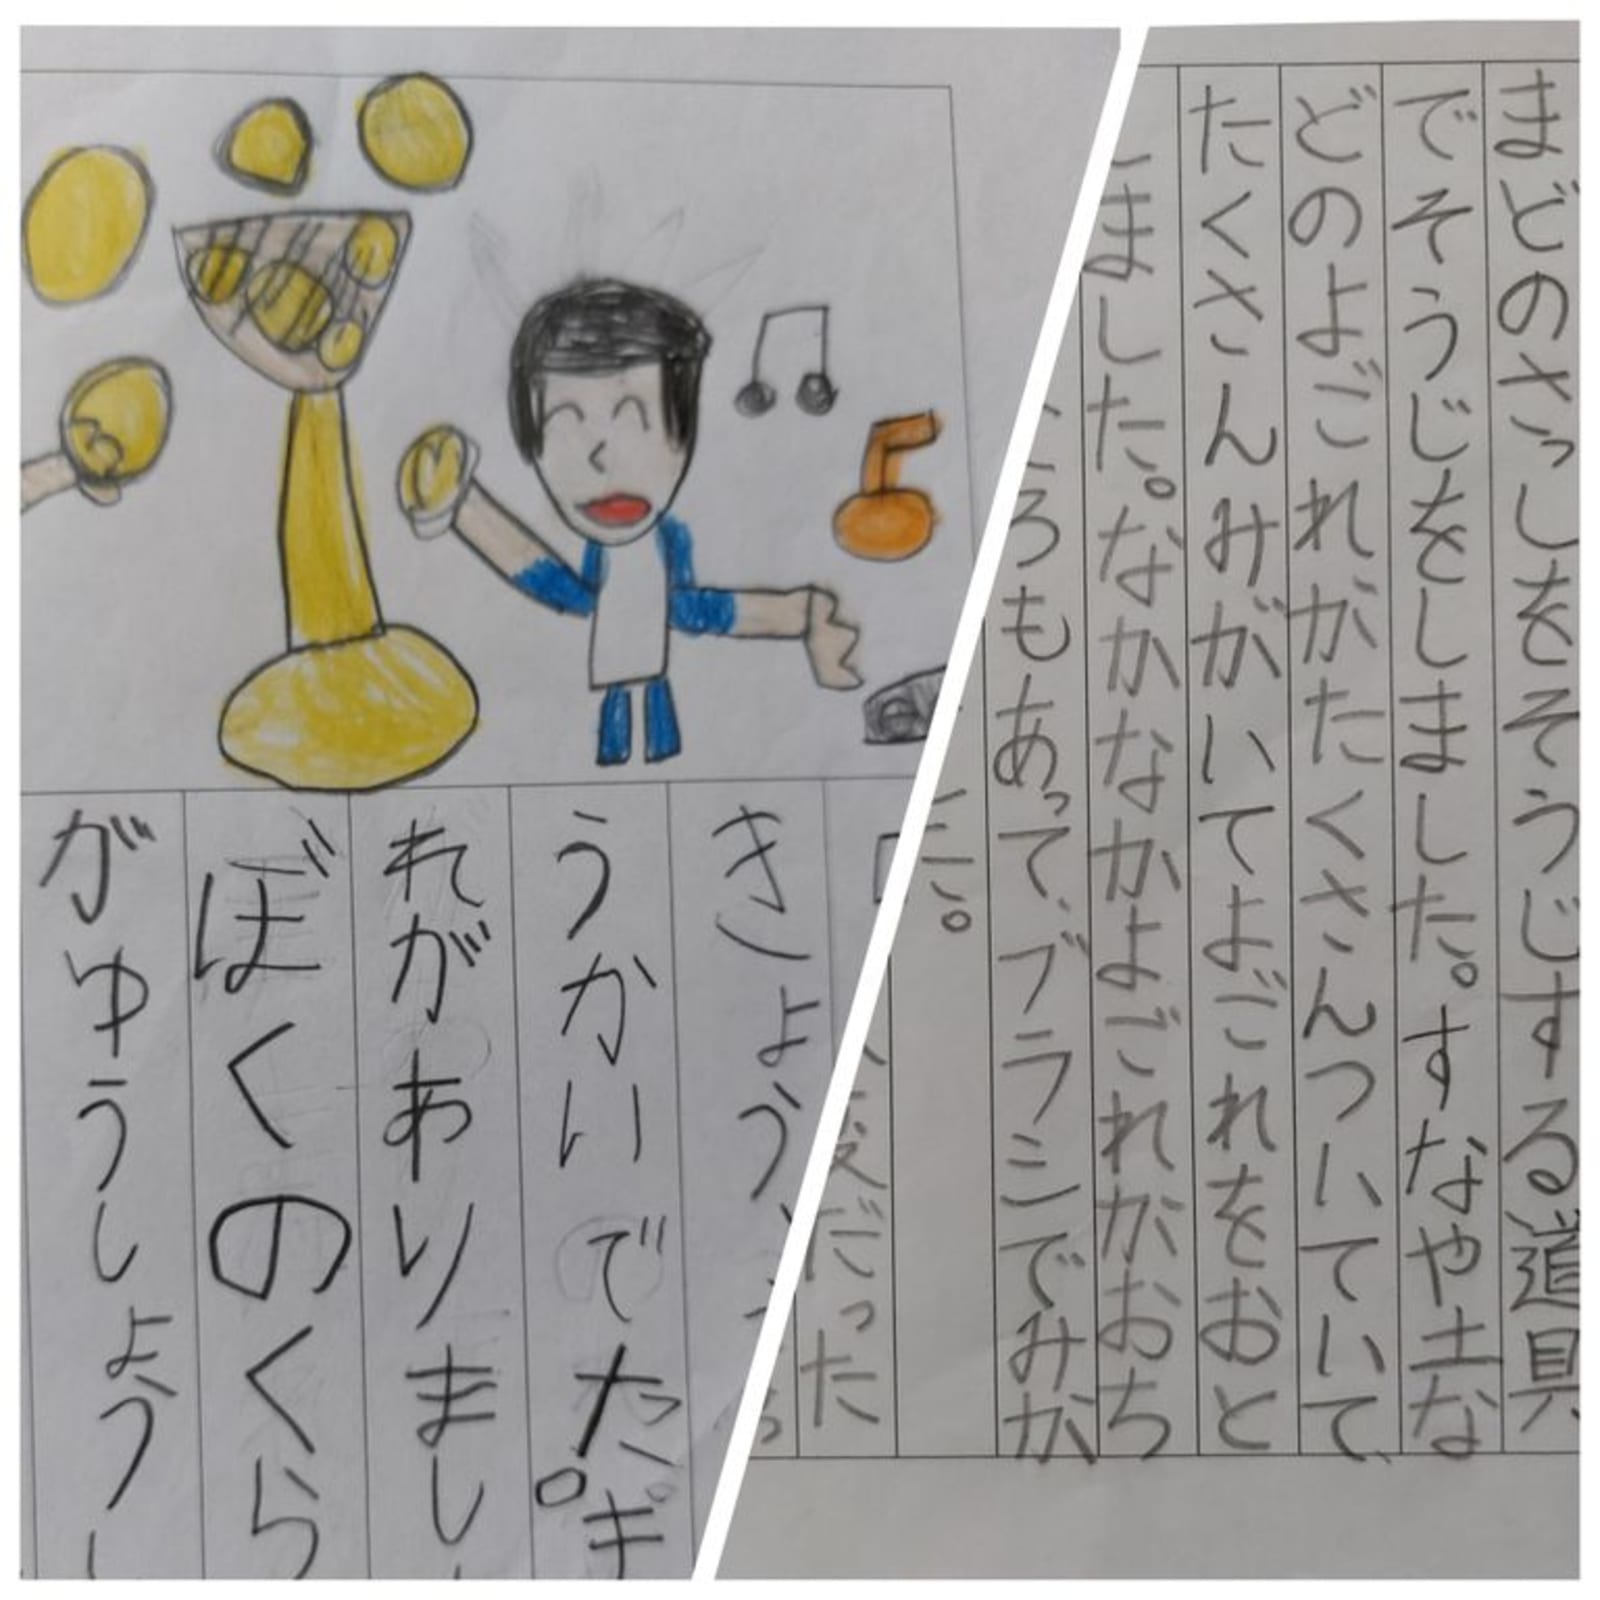 きょう、
うかいでた
れがありまし
ぼくのくら
がゆうしょう
まどのさっしをそうじする道具
でそうじをしました。すなや土な
どのよごれがたくさんついていて、
たくさんみがいてよごれをおと
ました。なかなかよごれがおち
ろもあって、ブラシでみが
た。
変だった